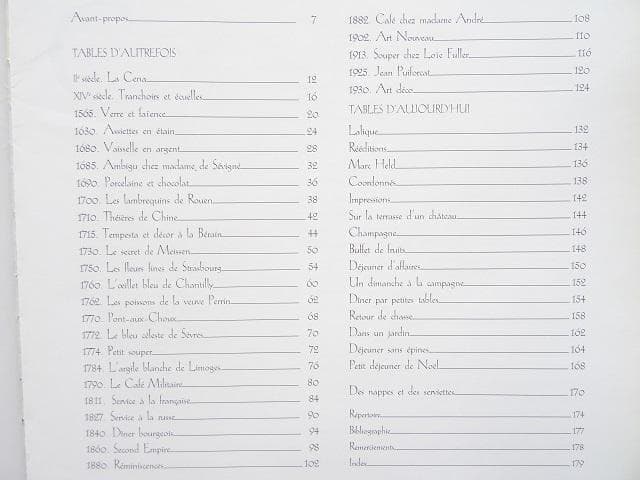 Avant-propos 7
TABLES D'AUTREFOIS
IIe siècle. La Cena 12
XIVe siècle. Tranchoirs et écuelles 16
1565. Verre et faïence 20
1630. Assiettes en étain 24
1680. Vaisselle en argent 28
1685. Ambigu chez madame de Sévigné 32
1690. Porcelaine et chocolat 36
1700. Les lambrequins de Rouen 38
1710. Théières de Chine 42
1715. Tempesta et décor à la Bérain 44
1730. Le secret de Meissen 50
1750. Les fleurs fines de Strasbourg 54
1760. L'œillet bleu de Chantilly 60
1762. Les poissons de la veuve Perrin 62
1770. Pont-aux-Choux 68
1772. Le bleu céleste de Sèvres 70
1774. Petit souper 72
1784. L'argile blanche de Limoges 76
1790. Le Café Militaire 80
1811. Service à la française 84
1827. Service à la russe 90
1840. Dîner bourgeois 94
1860. Second Empire 98
1880. Réminiscences 102
1882. Café chez madame André 108
1902. Art Nouveau 110
1913. Souper chez Loïe Fuller 116
1925. Jean Puiforcat 120
1930. Art déco 124
TABLES D'AUJOURD'HUI
Lalique 132
Rééditions 134
Marc Held 136
Coordonnés 138
Impressions 142
Sur la terrasse d'un château 144
Champagne 146
Buffet de fruits 148
Déjeuner d'affaires 150
Un dimanche à la campagne 152
Dîner par petites tables 154
Retour de chasse 158
Dans un jardin 162
Déjeuner sans épines 164
Petit déjeuner de Noël 168
Des nappes et des serviettes 170
Répertoire 174
Bibliographie 177
Remerciements 178
Index 179